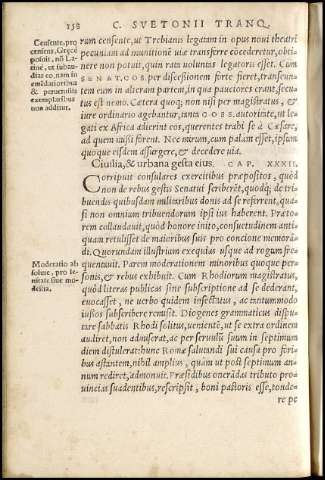 158 C. SVETONII TRANQ.
Censente, pro
censens, Græcè
posuit, nõ La-
tinè, ut subau-
dias eo, nam in
emẽdatioribus
& peruetustis
exemplaribus
non additur.
rum censente, ut Trebianis legatam in opus noui theatri
pecuniam ad munitionẽ uiæ transferre cõcederetur, obti-
nere non potuit, quin rata uoluntas legatoris esset. Cum
SENAT. COS. per discessionem forte fieret, transeun-
tem eum in alteram partem, in qua pauciores erant, secu-
tus est nemo. Cætera quoq; non nisi per magistratus, &
iure ordinario agebantur, tanta COSS. autoritate, ut le-
gati ex Africa adierint eos, querentes trahi se à Cæsare,
ad quem missi forent. Nec mirum, cum palam esset, ipsum
quoque eisdem assurgere, & decedere uia.
Ciuilia, & urbana gesta eius. CAP. XXXII.
Corripuit consulares exercitibus præpositos, quòd
non de rebus gestis Senatui scriberẽt, quodq; de tri-
buendis quibusdam militaribus donis ad se referrent, qua-
si non omnium tribuendorum ipsi ius haberent. Præto-
rem collaudauit, quòd honore inito, consuetudinem anti-
quam retulisset de maioribus suis pro concione memorã-
di. Quorundam illustrium exequias usque ad rogum fre-
Moderatio ab
solute, pro le-
nitate siue mo-
destia.
quentauit. Parem moderationem minoribus quoque per-
sonis, & rebus exhibuit. Cum Rhodiorum magistratus,
quòd literas publicas sine subscriptione ad se dederant,
euocasset, ne uerbo quidem insectatus, ac tantummodo
iussos subscribere remisit. Diogenes grammaticus dispu-
tare sabbatis Rhodi solitus, uenientẽ, ut se extra ordinem
audiret, non admiserat, ac per seruulũ suum in septimum
diem distulerat: hunc Romæ salutandi sui causa pro fori-
bus astantem, nihil amplius, quàm ut post septimum an-
num rediret, admonuit. Præsidibus onerãdas tributo pro
uincias suadentibus, rescripsit, boni pastoris esse, tonde-
re pe